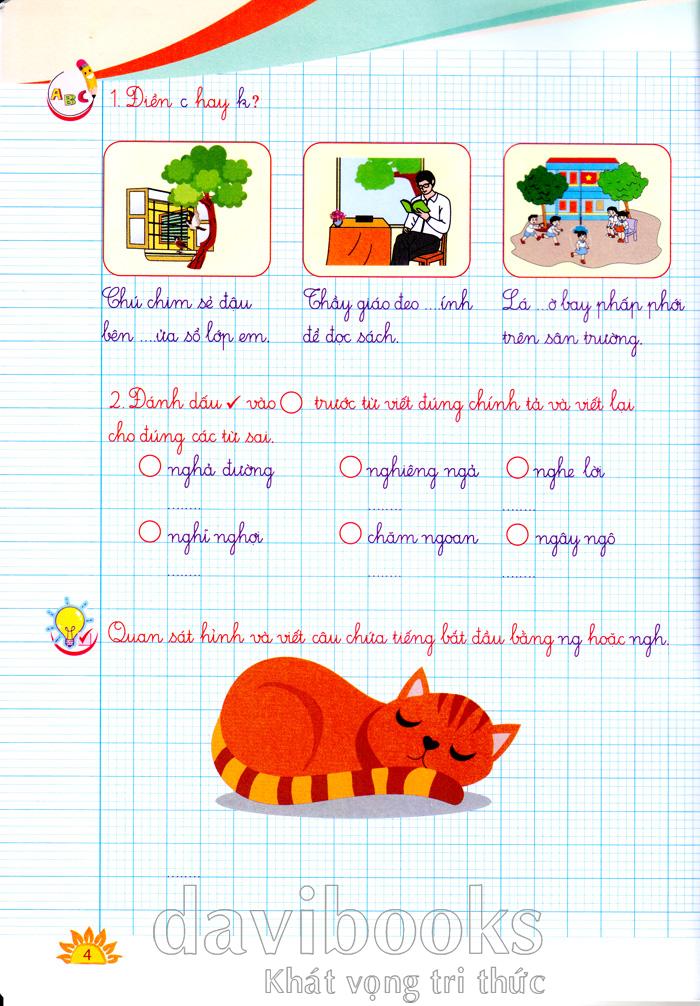 ABC
1. Điền c hay k?
Chú chim sẻ đậu
bên ....ửa sổ lớp em.
Thầy giáo đeo ....ính
để đọc sách.
Lá ...ờ bay phấp phới
trên sân trường.
2. Đánh dấu ✓ vào ◯ trước từ viết đúng chính tả và viết lại
cho đúng các từ sai.
◯ nghả đường ◯ nghiêng ngả ◯ nghe lời
........ ........ ........
◯ nghĩ nghợi ◯ chăm ngoan ◯ ngây ngô
........ ........ ........
Quan sát hình và viết câu chứa tiếng bắt đầu bằng ng hoặc ngh.
........
davibooks
Khát vọng tri thức
4